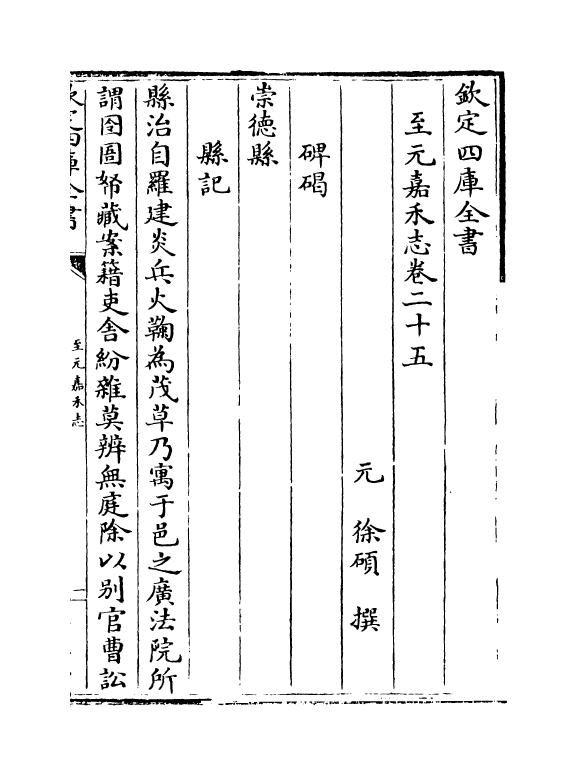 欽定四庫全書
至元嘉禾志卷二十五
元　徐碩　撰
碑碣
崇德縣
縣記
縣治自羅建炎兵火鞠為茂草乃寓于邑之廣法院所
謂囹圄帑藏案籍吏舎紛雜莫辨無庭除以别官曹訟
欽定四庫全書
至元嘉禾志